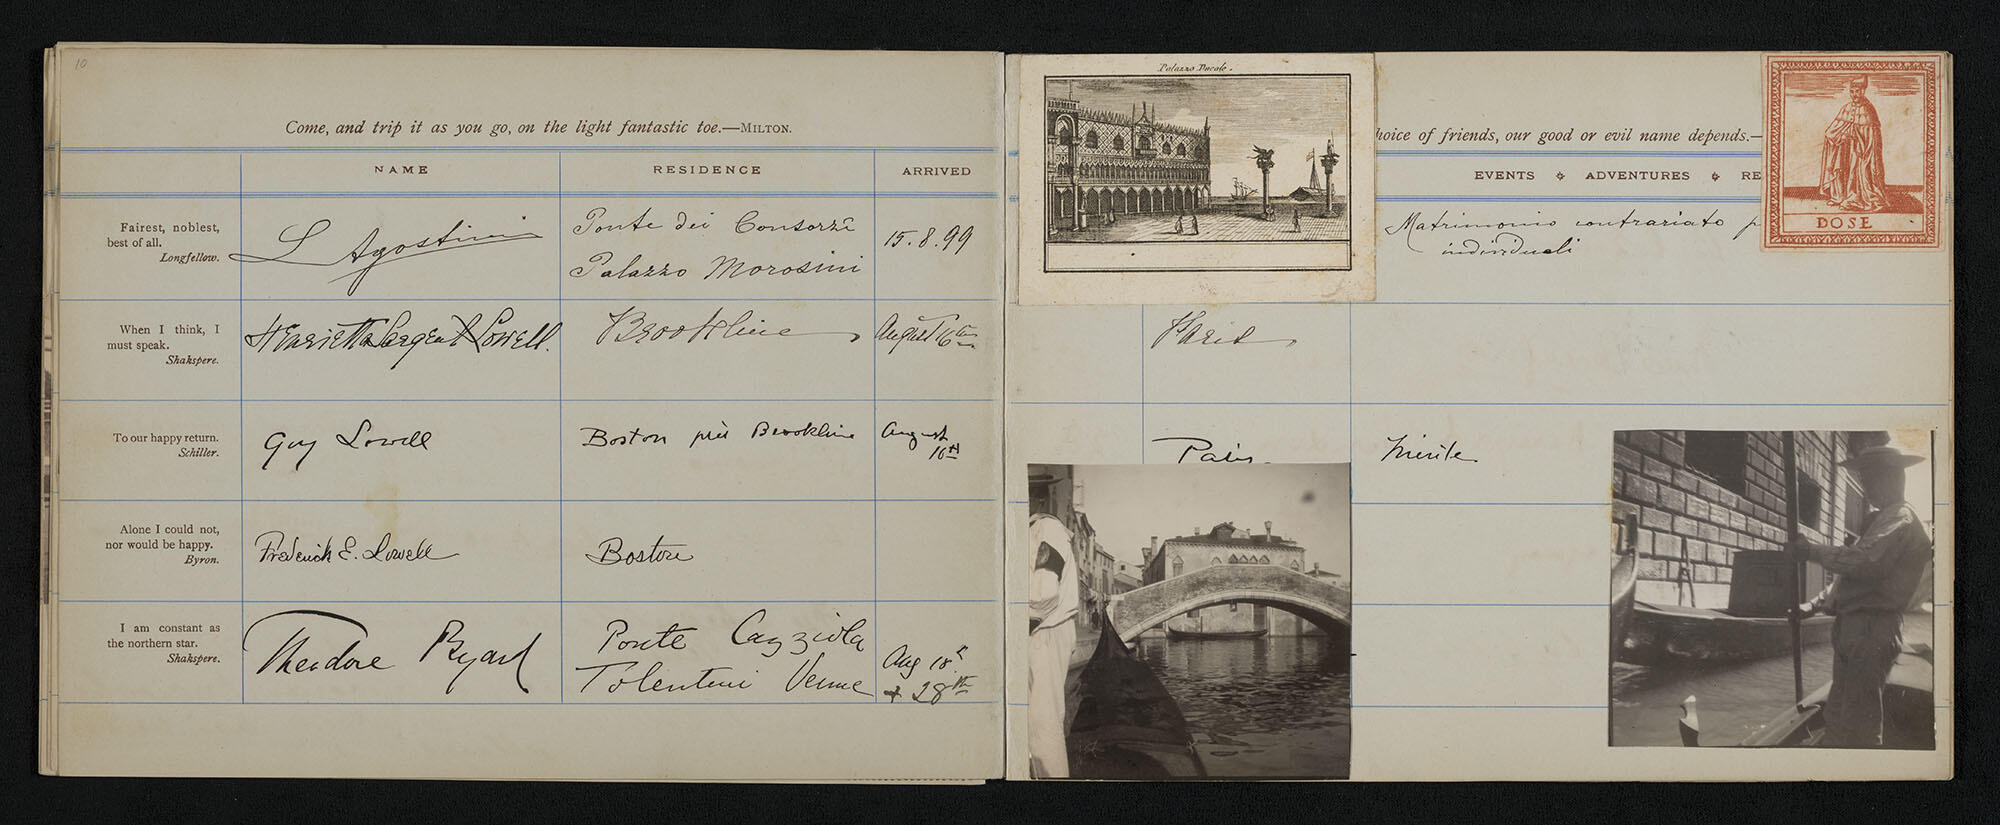 10
Come, and trip it as you go, on the light fantastic toe.—MILTON.
NAME RESIDENCE ARRIVED
Fairest, noblest,
best of all.
Longfellow.
L Agostini
Ponte dei Consorzi
Palazzo Morosini
15.8.99
When I think, I
must speak.
Shakspere.
Henrietta Sargent Lowell.
Brookline
August 16th
To our happy return.
Schiller.
Guy Lowell
Boston près Brookline
August
16th
Alone I could not,
nor would be happy.
Byron.
Frederick E. Lowell
Boston
I am constant as
the northern star.
Shakspere.
Theodore Byard
Ponte
Tolentini Venice
Aug 18th
+ 28th
Palazzo Ducale.
hoice of friends, our good or evil name depends.—
EVENTS ADVENTURES RE
DOSE
Matrimonio contrariato p
individuali
Paris
Paris